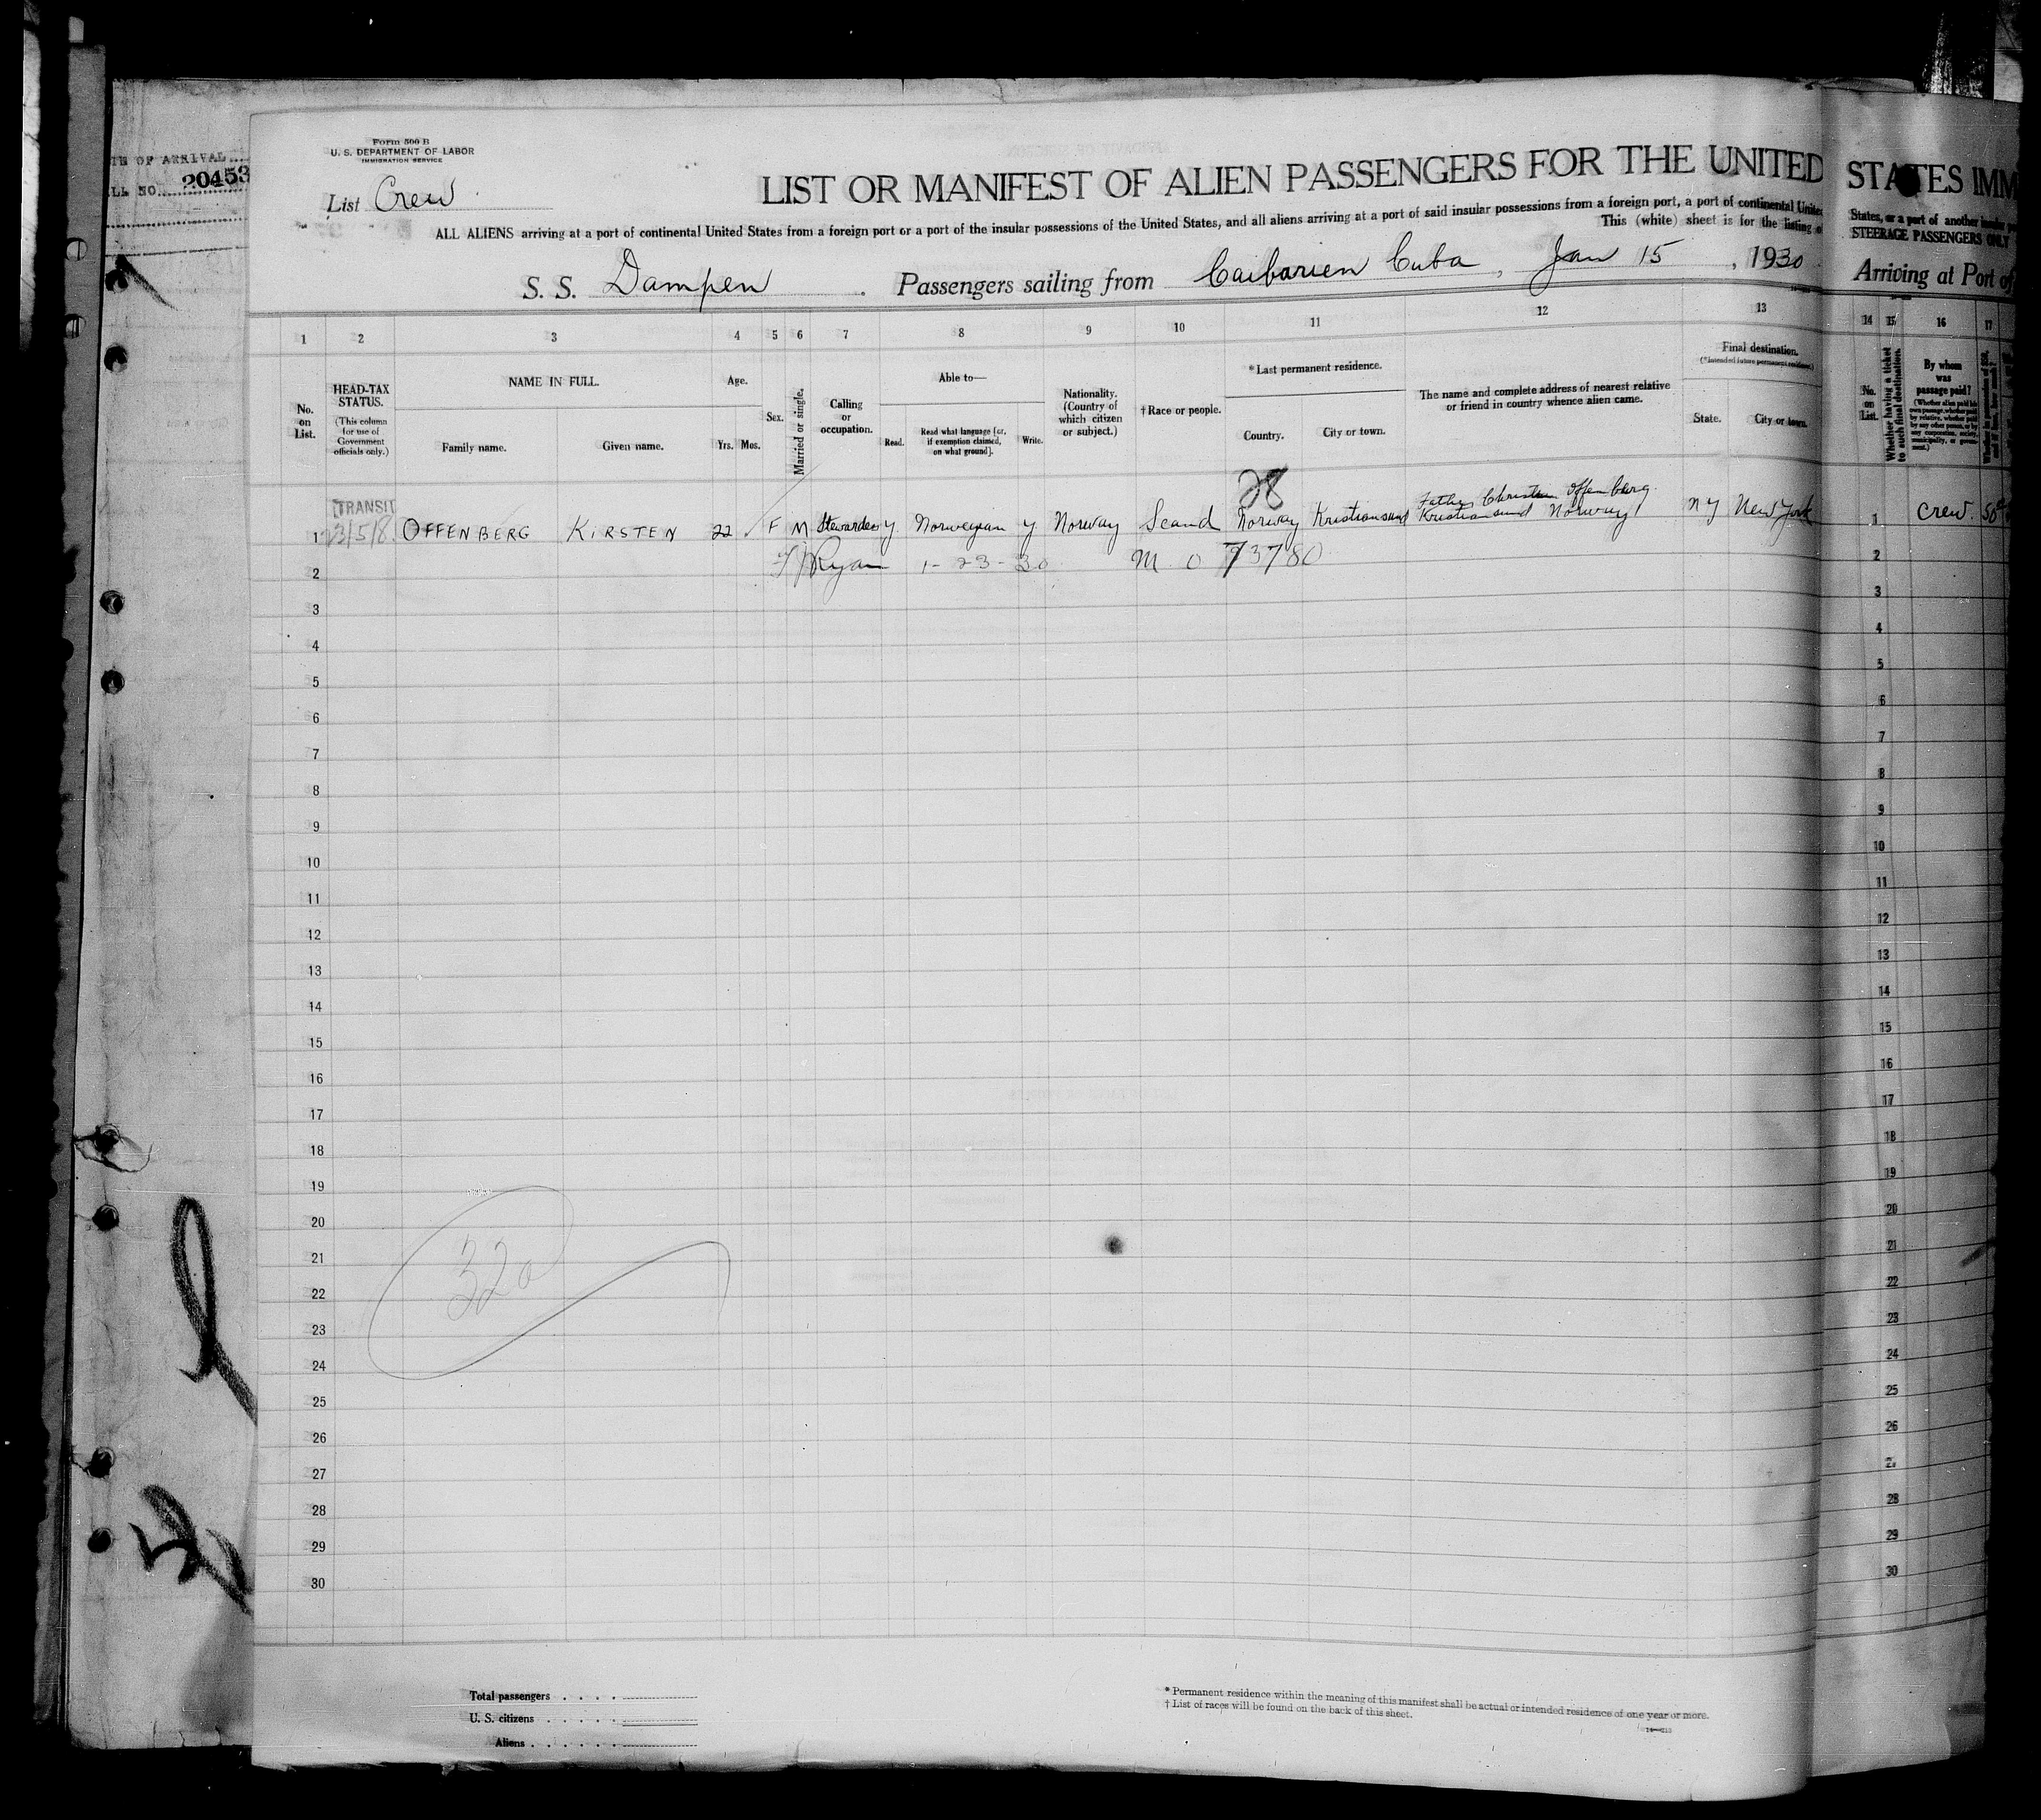 Form 500 B
U. S. DEPARTMENT OF LABOR
IMMIGRATION SERVICE
TE OF ARRIVAL
LL NO. 20453
List Crew
LIST OR MANIFEST OF ALIEN PASSENGERS FOR THE UNITED STATES IMM
ALL ALIENS arriving at a port of continental United States from a foreign port or a port of the insular possessions of the United States, and all aliens arriving at a port of said insular possessions from a foreign port, a port of continental United States, or a port of another insular
This (white) sheet is for the listing of STEERAGE PASSENGERS ONLY
S. S. Dampen Passengers sailing from Caibarien Cuba, Jan 15, 1930 Arriving at Port of
1 2 3 4 5 6 7 8 9 10 11 12 13 14 15 16 17
No. on List.
HEAD-TAX STATUS.
(This column for use of Government officials only.)
NAME IN FULL.
Family name. Given name.
Age.
Yrs. Mos.
Sex.
Married or single.
Calling or occupation.
Able to—
Read. Read what language [or, if exemption claimed, on what ground]. Write.
Nationality. (Country of which citizen or subject.)
† Race or people.
* Last permanent residence.
Country. City or town.
The name and complete address of nearest relative or friend in country whence alien came.
Final destination.
(* intended future permanent residence.)
State. City or town.
No. on List.
Whether having a ticket to such final destination.
By whom was passage paid?
28
TRANSIT
Father Christian Offenberg
1 OFFENBERG KIRSTEN 22 F M Stewardess y Norwegian y Norway Scand Norway Kristiansund Kristiansund Norway N Y New York 1 Crew
2 Ryan 1-23-30 M O 73780 2
3 3
4 4
5 5
6 6
7 7
8 8
9 9
10 10
11 11
12 12
13 13
14 14
15 15
16 16
17 17
18 18
19 19
20 20
21 21
22 22
23 23
24 24
25 25
26 26
27
28 28
29 29
30 30
Total passengers
U. S. citizens
Aliens
* Permanent residence within the meaning of this manifest shall be actual or intended residence of one year or more.
† List of races will be found on the back of this sheet.